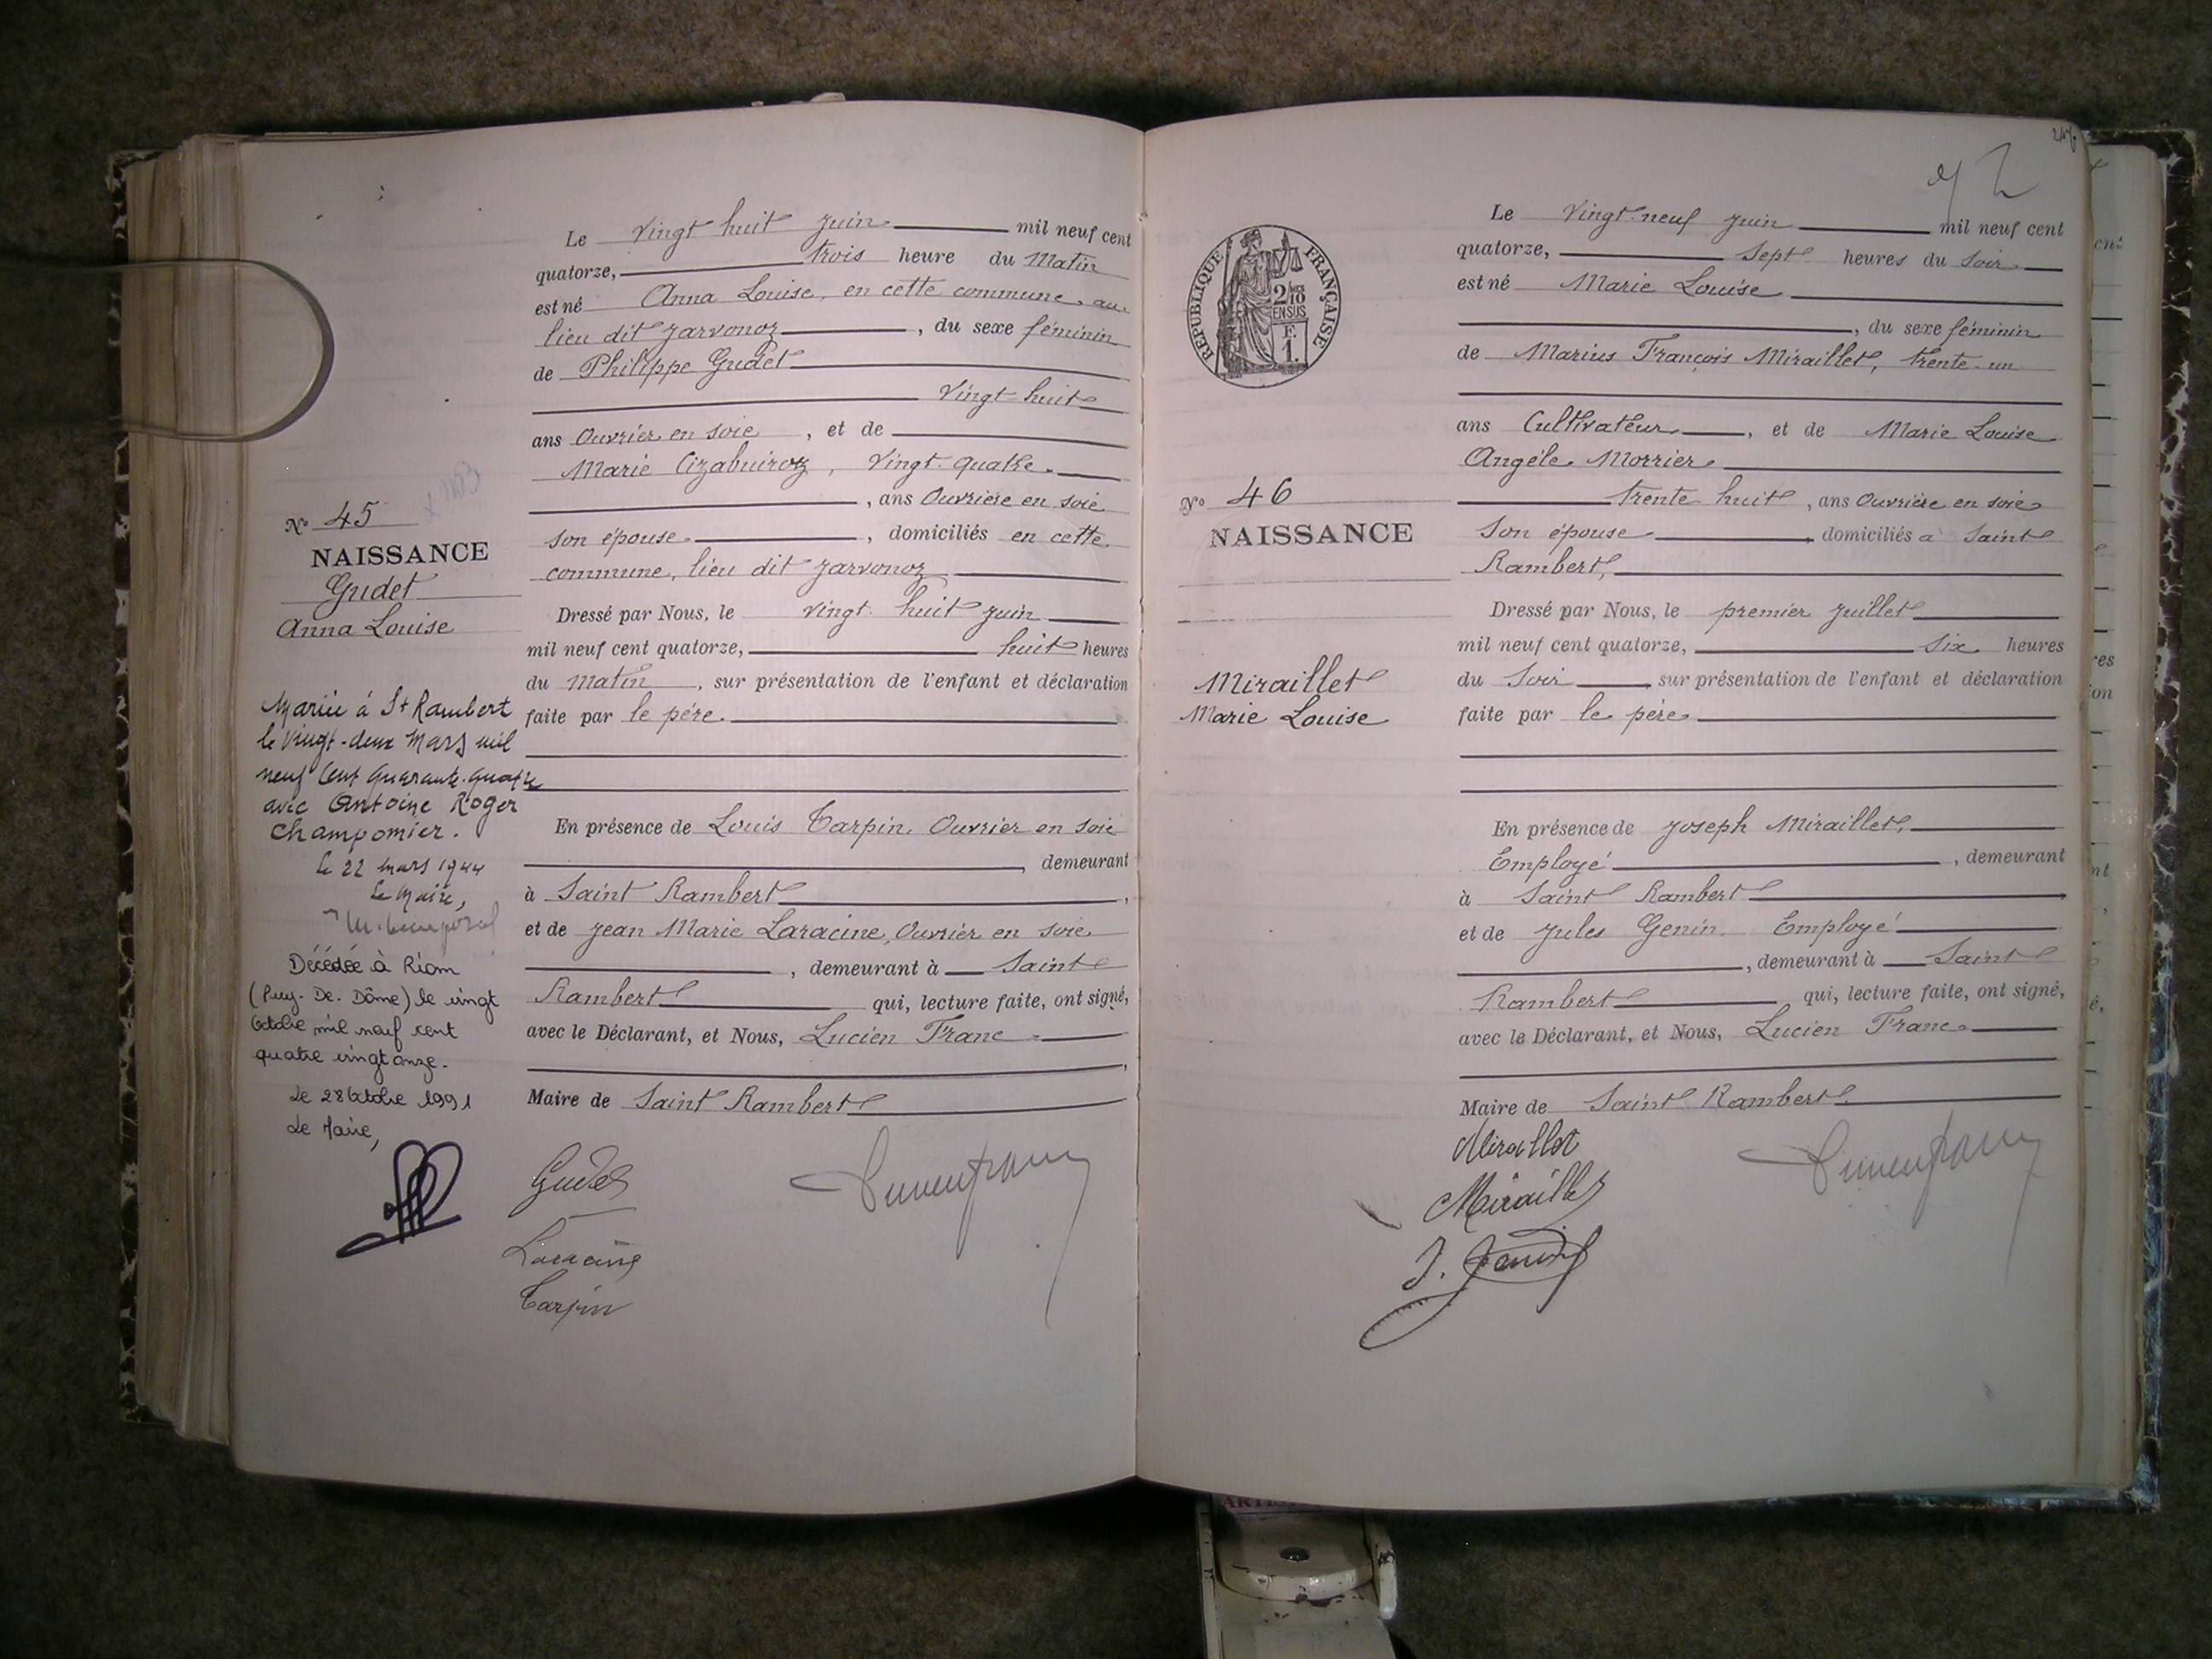 Le Vingt huit Juin mil neuf cent
quatorze, trois heure du Matin
est né Anna Louise, en cette commune, au
lieu dit Jarvonoz, du sexe féminin
de Philippe Gudet
Vingt huit
ans Ouvrier en soie, et de
Marie, Vingt quatre
, ans Ouvrière en soie
son épouse, domiciliés en cette
commune, lieu dit Jarvonoz
Dressé par Nous, le vingt huit Juin
mil neuf cent quatorze, huit heures
du Matin, sur présentation de l'enfant et déclaration
faite par le père.
En présence de Louis Tarpin, Ouvrier en soie
, demeurant
à Saint Rambert,
et de Jean Marie Laracine, Ouvrier en soie
, demeurant à Saint
Rambert qui, lecture faite, ont signé,
avec le Déclarant, et Nous, Lucien Franc
Maire de Saint Rambert
Gudet
Laracine
Tarpin
No 45
NAISSANCE
Gudet
Anna Louise
Mariée à St Rambert
le vingt-deux Mars mil
neuf Cent Quarante-quatre
avec Antoine Roger
Champomier.
Le 22 mars 1944
Le Maire,
Décédée à Riom
(Puy-De-Dôme) le vingt
Octobre mil neuf cent
quatre vingt onze.
Le 28 Octobre 1991
Le Maire,
RÉPUBLIQUE FRANÇAISE
2/10
EN SUS
F.
1.
Le Vingt-neuf Juin mil neuf cent
quatorze, Sept heures du Soir
est né Marie Louise
, du sexe féminin
de Marius François Miraillet, trente-un
ans Cultivateur, et de Marie Louise
Angèle Morrier
trente huit, ans Ouvrière en soie
Son épouse, domiciliés à Saint
Rambert,
Dressé par Nous, le premier Juillet
mil neuf cent quatorze, Six heures
du Soir, sur présentation de l'enfant et déclaration
faite par le père
En présence de Joseph Miraillet,
Employé, demeurant
à Saint Rambert
et de Jules Genin Employé
, demeurant à Saint
Rambert qui, lecture faite, ont signé,
avec le Déclarant, et Nous, Lucien Franc
Maire de Saint Rambert
Miraillet
Miraillet
J. Genin
No 46
NAISSANCE
Miraillet
Marie Louise